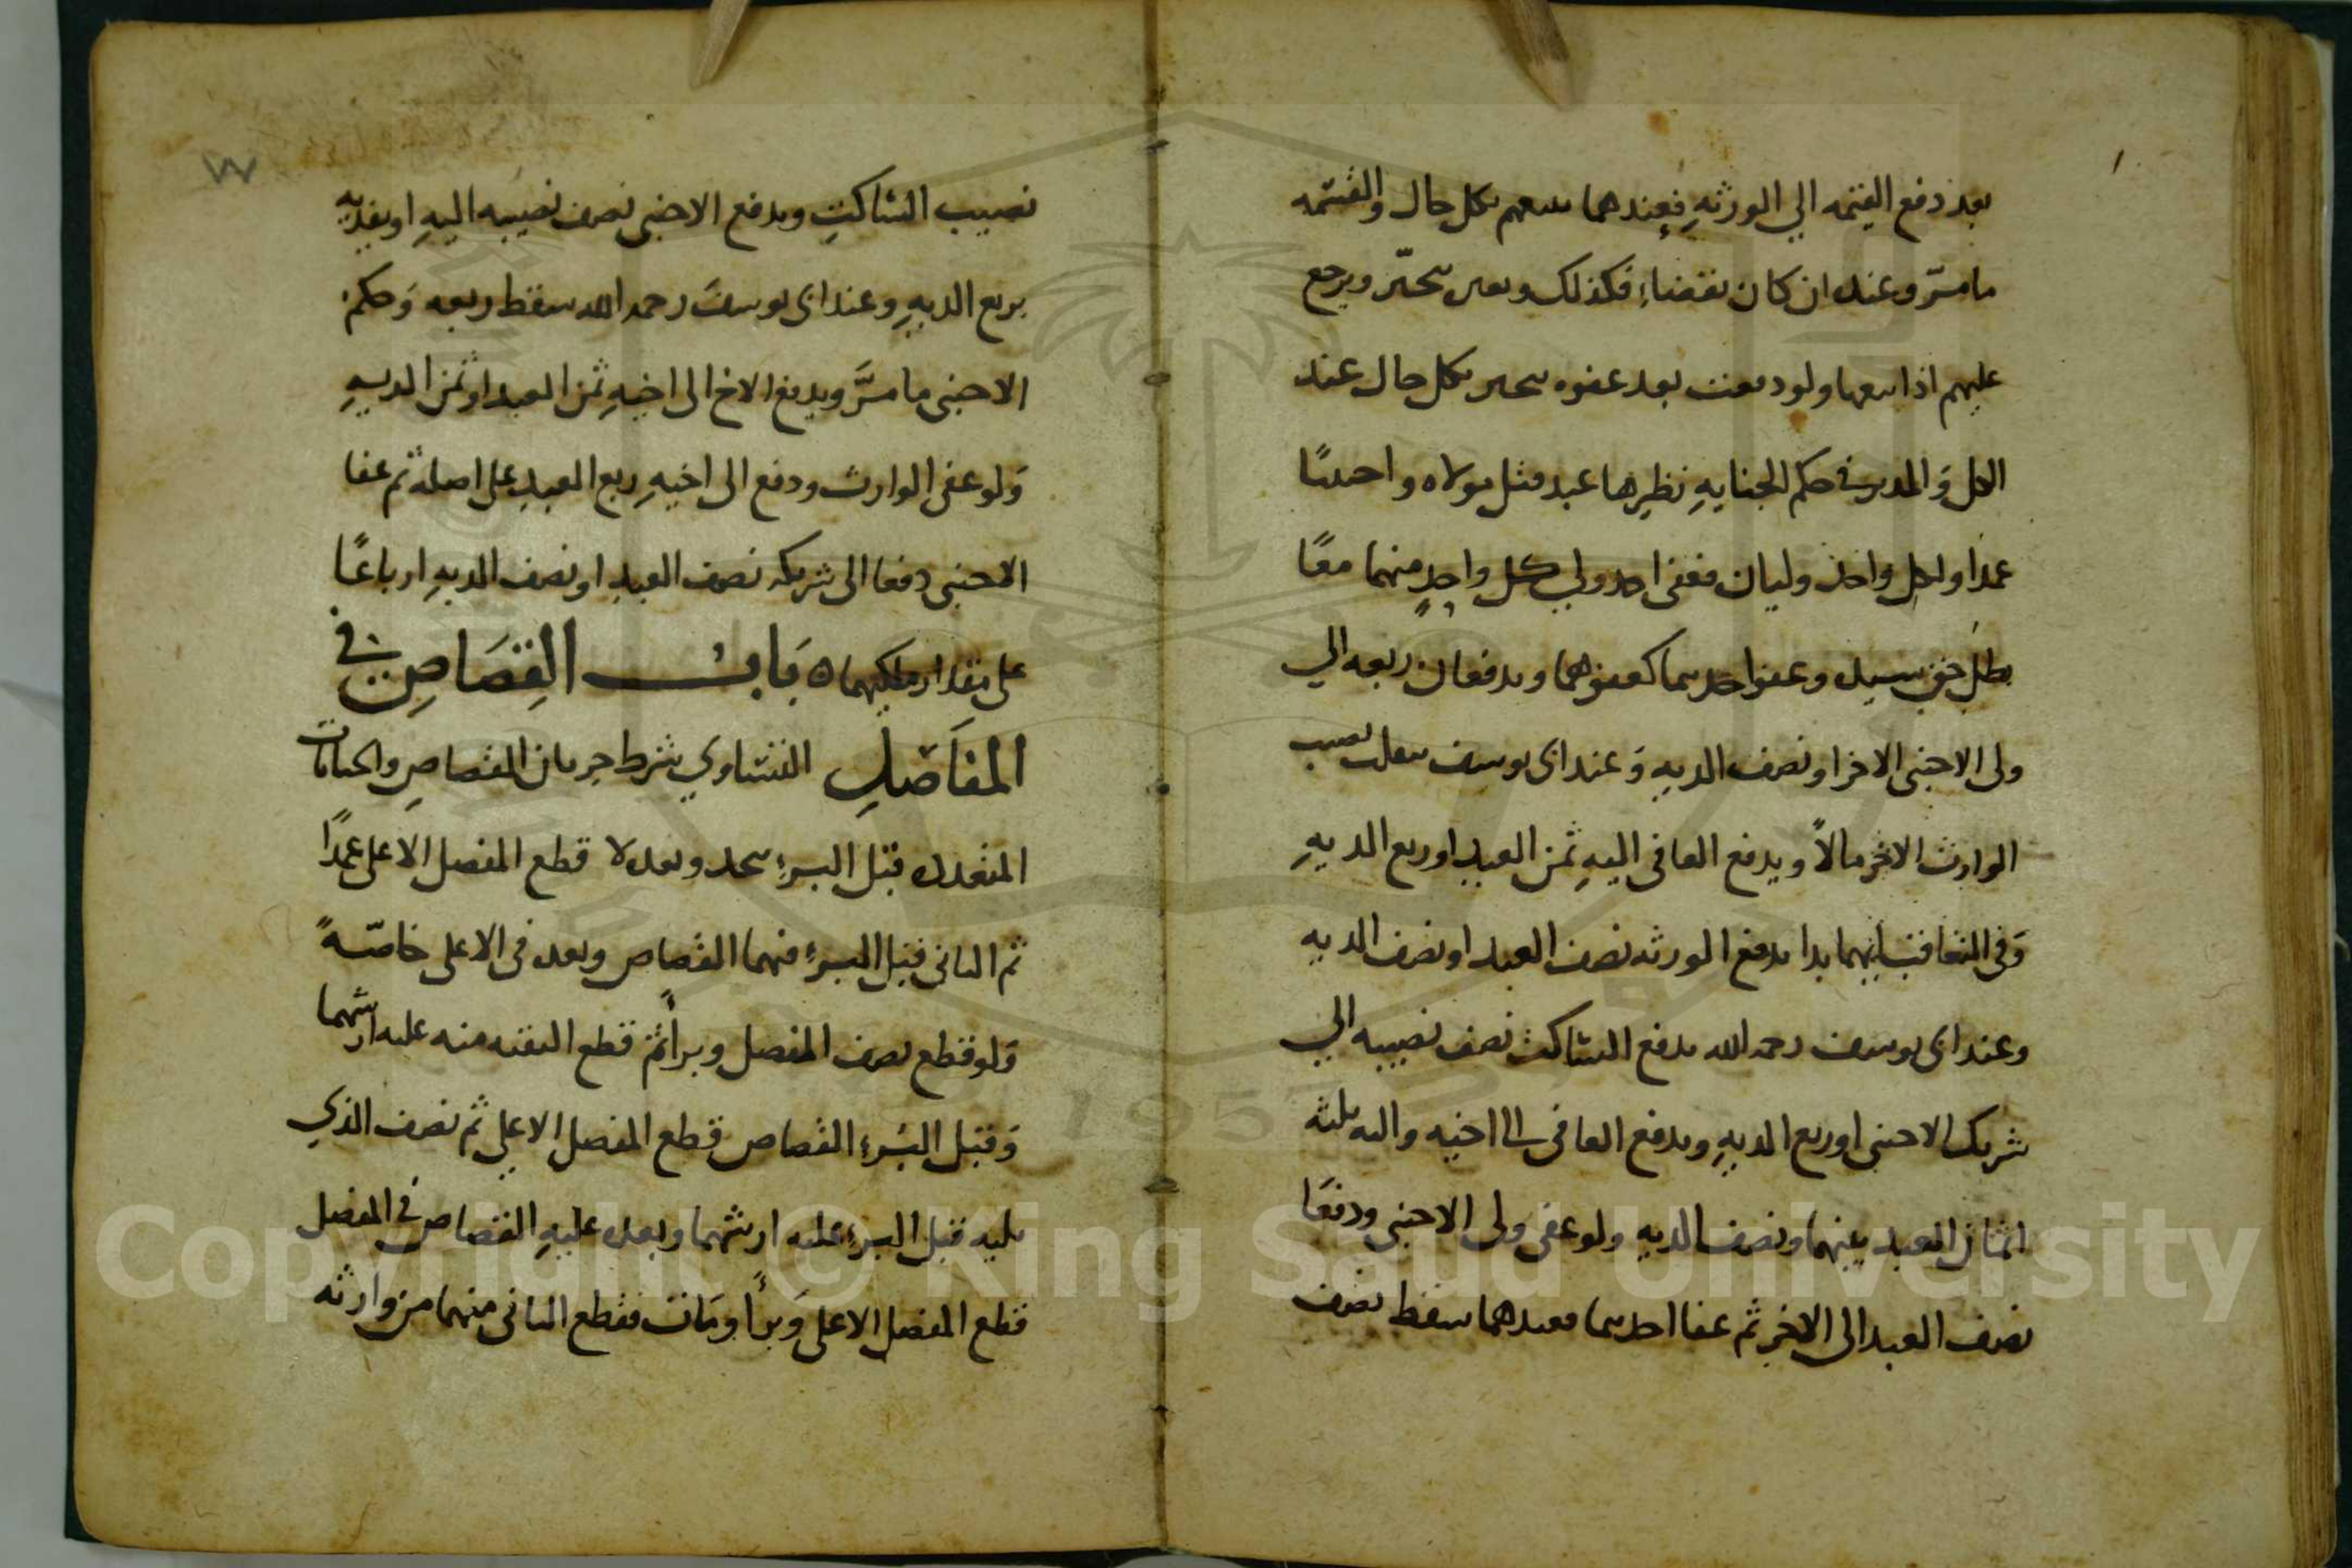 بعد دفع القيمه الي الورثهِ فعندهما يتبعهم بكل حال والقسمه
ما مرّ وعنده ان كان بقضاءِ فكذلك ويرجع
عليهم اذا ولو دفعت بعد عفوه بكل حال عند
الكل وَالمدبر في حكم الجنايهِ نظيرها عبد قتل مولاه واجنبيًا
عمدًا ولكل واحدٍ وليان فعفى احد ولي كل واحدٍ منهما معًا
بطل حق سيده وعفو احدهما كعفوهما ويدفعان ربعه الي
ولى الاجنبى الاخر او نصف الديهِ وَعند ابى يوسف نصيب
الوارث الاخر مالًا ويدفع العافى اليهِ ثمن العبد او ربع الديهِ
وَفى التعاقب بايهما بدا يدفع الورثه نصف العبد او نصف الديه
وعند ابى يوسف رحمه الله يدفع الساكت نصف نصيبه الي
شريك الاجنبى او ربع الديهِ ويدفع العافى الى اخيه واليه ثلثه
اثمان العبد بينهما ونصف الديهِ ولو عفى ولى الاجنبى ودفعَا
نصف العبد الى الاخر ثم عفا احدهما فعندهما سقط نصف
٧٧
نصيب الساكتِ ويدفع الاجنبى نصف نصيبه اليهِ او يفديه
بربع الديهِ وعند ابى يوسف رحمه الله سقط ربعه وَحكم
الاجنبى ما مرَّ ويدفع الاخ الى اخيهِ ثمن العبد او ثمن الديهِ
وَلو عفى الوارث ودفع الى اخيهِ ربع العبدِ على اصله ثم عفا
الاجنبى دفعا الى شريكه نصف العبدِ او نصف الديهِ ارباعًا
على مقدار ملكيهما ه بَابُ القِصَاصِ في
المفَاصِلِ التساوي شرط جريان القصاصِ والجنايات
المتعدده قبل البرءِ تتحد وبعده لا قطع المفصل الاعلى عمدًا
ثم الثانى قبل البرءِ فيهما القصاص وبعده فى الاعلى خاصّةً
وَلو قطع نصف المفصل وبرأ ثم قطع البقيه منه عليه ارشهما
وَقبل البُرءِ القصاص قطع المفصل الاعلي ثم نصف الذي
يليه قبل البرءِ عليه ارشهما وبعده عليهِ القصاص في المفصل
قطع المفصل الاعلى وَبرأ ومَات فقطع الثانى منهما من وارثه
Copyright © King Saud University
1957